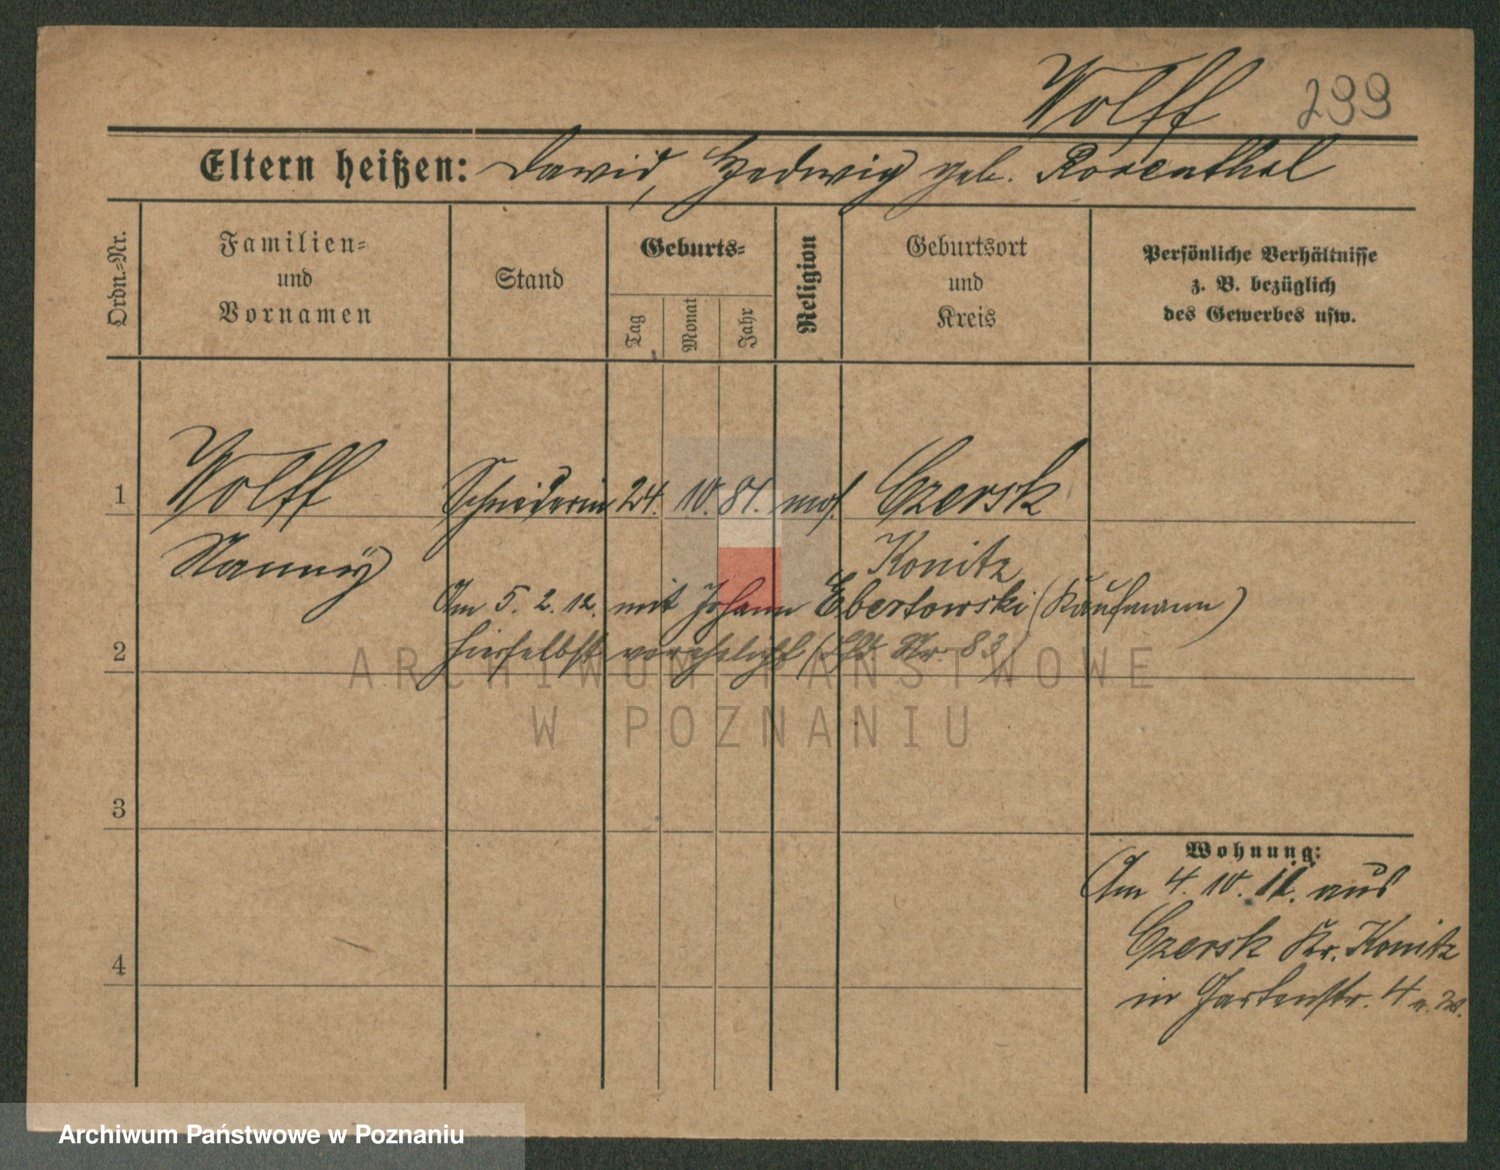 Wolff 299
Eltern heißen: David, Hedwig geb. Rosenthal
Ordn.-Nr.
Familien-
und
Vornamen
Stand
Geburts-
Tag
Monat
Jahr
Religion
Geburtsort
und
Kreis
Persönliche Verhältnisse
z. B. bezüglich
des Gewerbes usw.
1 Wolff Schneiderin 24. 10. 81. mos. Czersk
Nanny Konitz
Am 5. 2. 12. mit Johann Ebertowski (Kaufmann)
2 hierselbst verehelicht ( Nr. 83)
ARCHIWUM PAŃSTWOWE
W POZNANIU
3
Wohnung:
Am 4. 10. 11. aus
Czersk Kr. Konitz
4
in Gartenstr. 4
Archiwum Państwowe w Poznaniu